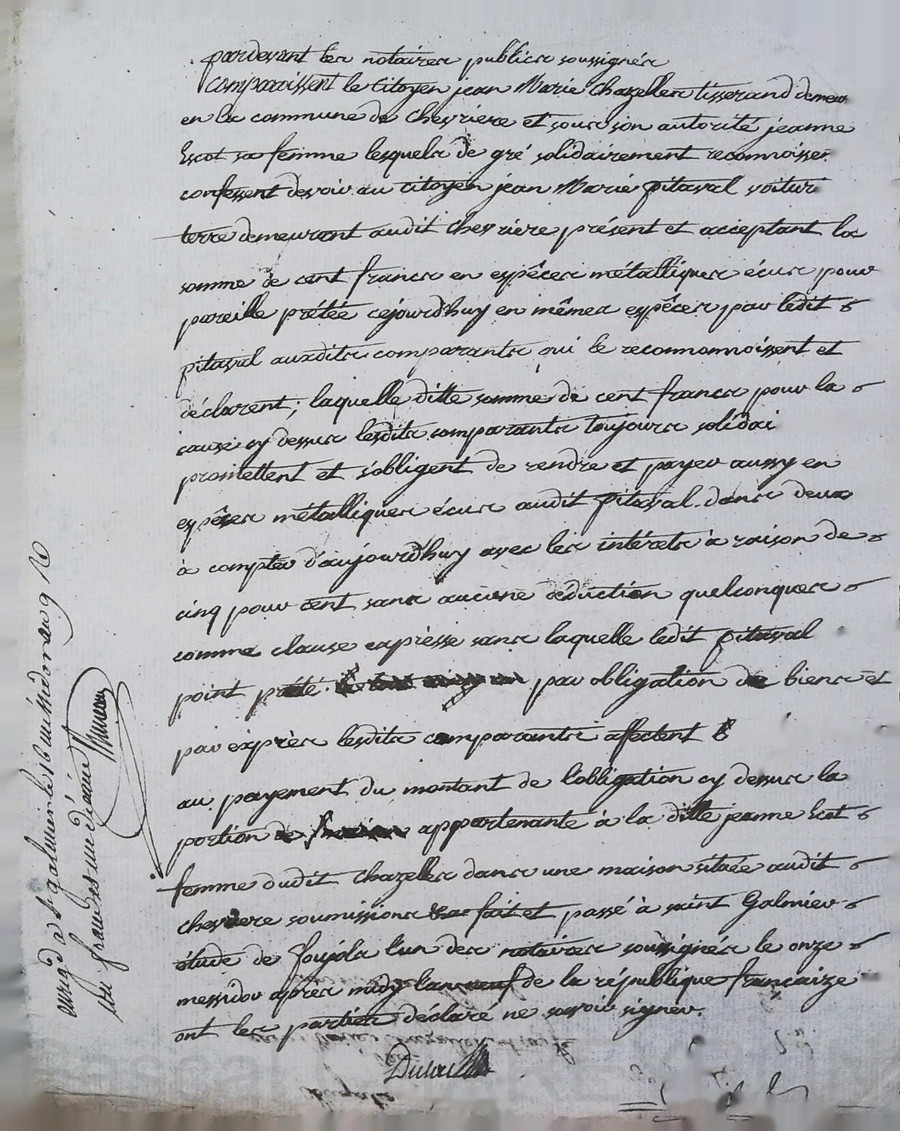 pardevant les notaires publics soussignés
Comparaissent le citoyen jean Marie Chazelles tisserand demeu
en la commune de chevriere et sous son autorité jeanne
Escot sa femme lesquels de gré solidairement reconnoisse
confessent devoir au citoyen jean Marie pitaval voitur
terre demeurant audit chevriere présent et acceptant la
somme de cent francs en espêces métalliques écus pour
pareille prêtée cejourd'huy en mêmes espêces par ledit
pitaval auxdits comparants qui le reconnonnoissent et
déclarent; laquelle ditte somme de cent francs pour la
cause cy dessus lesdits comparants toujours solidai
promettent et s'obligent de rendre et payer aussy en
espêces métalliques écus audit pitaval dans deux
à compter d'aujourd'huy avec les intérêts à raison de
cinq pour cent sans aucune déduction quelconques
comme clause expresse sans laquelle ledit pitaval
point prêté par obligation de biens et
par exprès lesdits comparants affectent
au payement du montant de l'obligation cy dessus la
portion appartenante à la ditte jeanne Escot
femme dudit chazelles dans une maison située audit
chevriere soumissions fait et passé à saint Galmier
étude de foujols l'un des notaires soussignés le onze
messidor après midy l'an neuf de la république francaize
ont les parties déclaré ne savoir signer.
messidor an 9